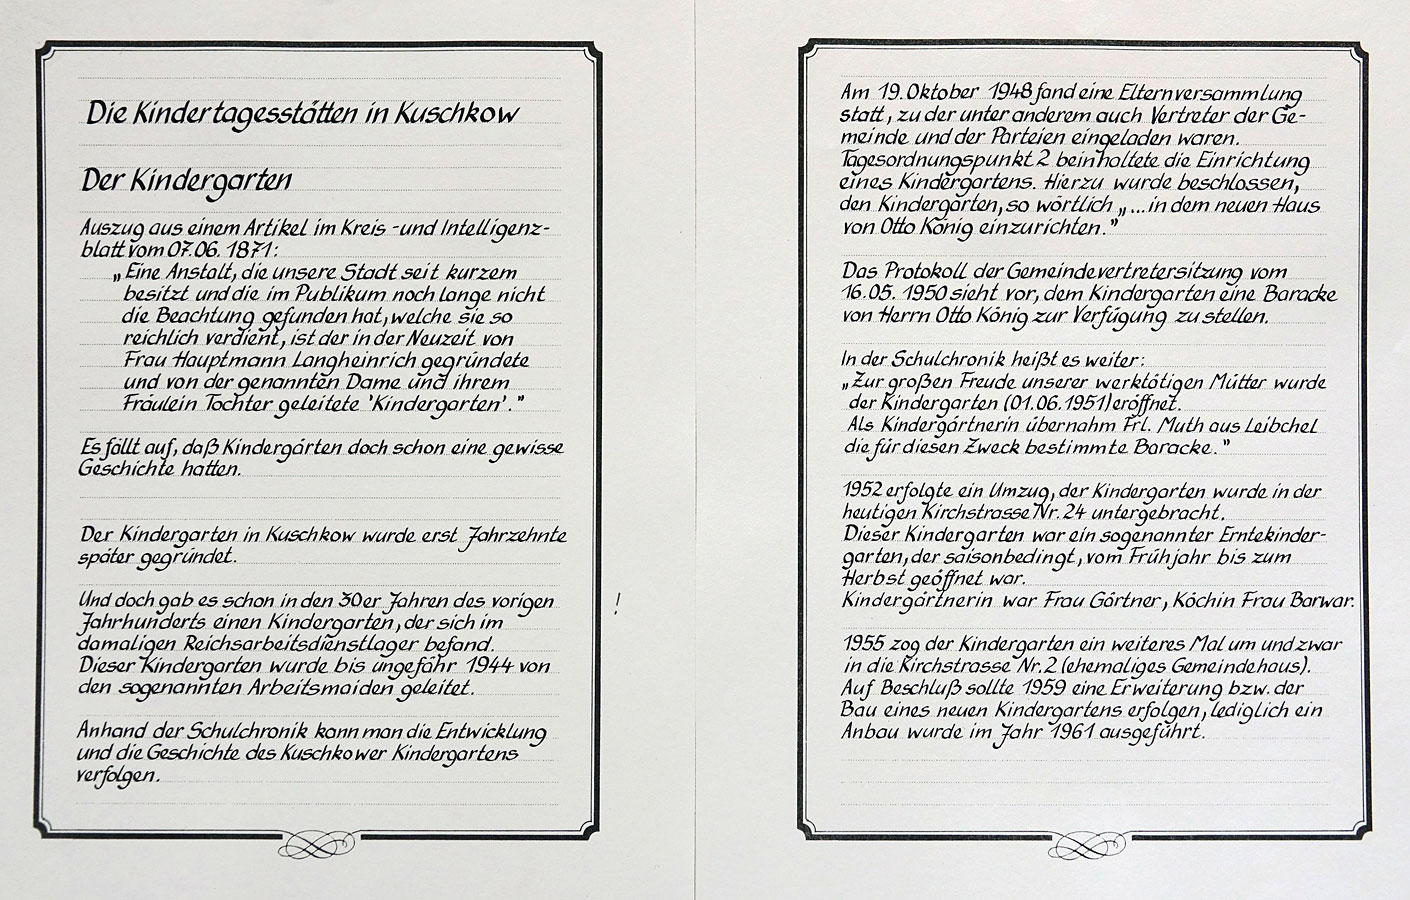 Die Kindertagesstätten in Kuschkow
Der Kindergarten
Auszug aus einem Artikel im Kreis - und Intelligenz-
blatt vom 07.06. 1871:
„Eine Anstalt, die unsere Stadt seit kurzem
besitzt und die im Publikum noch lange nicht
die Beachtung gefunden hat, welche sie so
reichlich verdient, ist der in der Neuzeit von
Frau Hauptmann Langheinrich gegründete
und von der genannten Dame und ihrem
Fräulein Tochter geleitete 'Kindergarten'."
Es fällt auf, daß Kindergärten doch schon eine gewisse
Geschichte hatten.
Der Kindergarten in Kuschkow wurde erst Jahrzehnte
später gegründet.
Und doch gab es schon in den 30er Jahren des vorigen
Jahrhunderts einen Kindergarten, der sich im
damaligen Reichsarbeitsdienstlager befand.
Dieser Kindergarten wurde bis ungefähr 1944 von
den sogenannten Arbeitsmaiden geleitet.
Anhand der Schulchronik kann man die Entwicklung
und die Geschichte des Kuschkower Kindergartens
verfolgen.
!
Am 19. Oktober 1948 fand eine Elternversammlung
statt, zu der unter anderem auch Vertreter der Ge-
meinde und der Parteien eingeladen waren.
Tagesordnungspunkt 2 beinhaltete die Einrichtung
eines Kindergartens. Hierzu wurde beschlossen,
den Kindergarten, so wörtlich „...in dem neuen Haus
von Otto König einzurichten."
Das Protokoll der Gemeindevertretersitzung vom
16.05. 1950 sieht vor, dem Kindergarten eine Baracke
von Herrn Otto König zur Verfügung zu stellen.
In der Schulchronik heißt es weiter:
„Zur großen Freude unserer werktätigen Mütter wurde
der Kindergarten (01.06.1951) eröffnet.
Als Kindergärtnerin übernahm Frl. Muth aus Leibchel
die für diesen Zweck bestimmte Baracke."
1952 erfolgte ein Umzug, der Kindergarten wurde in der
heutigen Kirchstrasse Nr. 24 untergebracht.
Dieser Kindergarten war ein sogenannter Erntekinder-
garten, der saisonbedingt, vom Frühjahr bis zum
Herbst geöffnet war.
Kindergärtnerin war Frau Gärtner, Köchin Frau Barwar.
1955 zog der Kindergarten ein weiteres Mal um und zwar
in die Kirchstrasse Nr. 2 (ehemaliges Gemeindehaus).
Auf Beschluß sollte 1959 eine Erweiterung bzw. der
Bau eines neuen Kindergartens erfolgen, lediglich ein
Anbau wurde im Jahr 1961 ausgeführt.